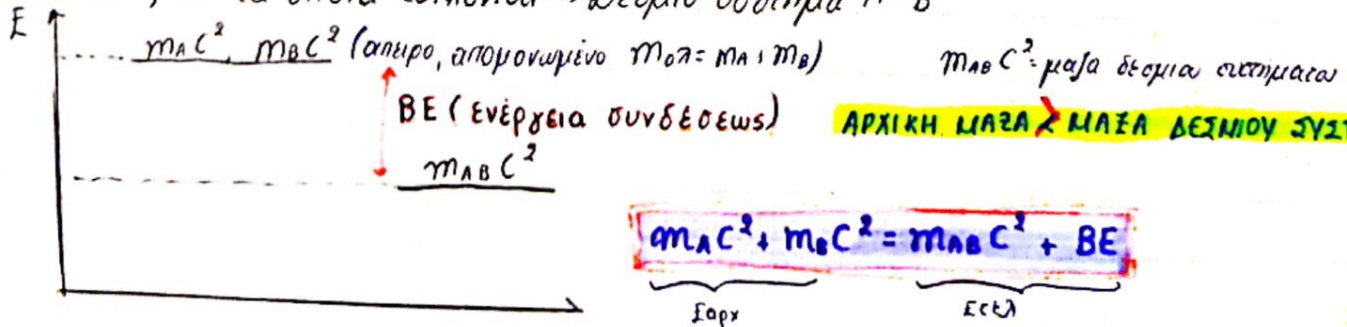 τα οποία δέσμιο σύστημα A-B
E
m_A C², m_B C² (απειρο, απομονωμένο m_ολ = m_A + m_B)
m_AB C² = μαζα δεσμιου συστήματος
BE (ενέργεια συνδέσεως)
ΑΡΧΙΚΗ ΜΑΖΑ > ΜΑΖΑ ΔΕΣΜΙΟΥ ΣΥΣΤ
m_AB C²
m_A C² + m_B C² = m_AB C² + BE
Εαρχ Ετελ